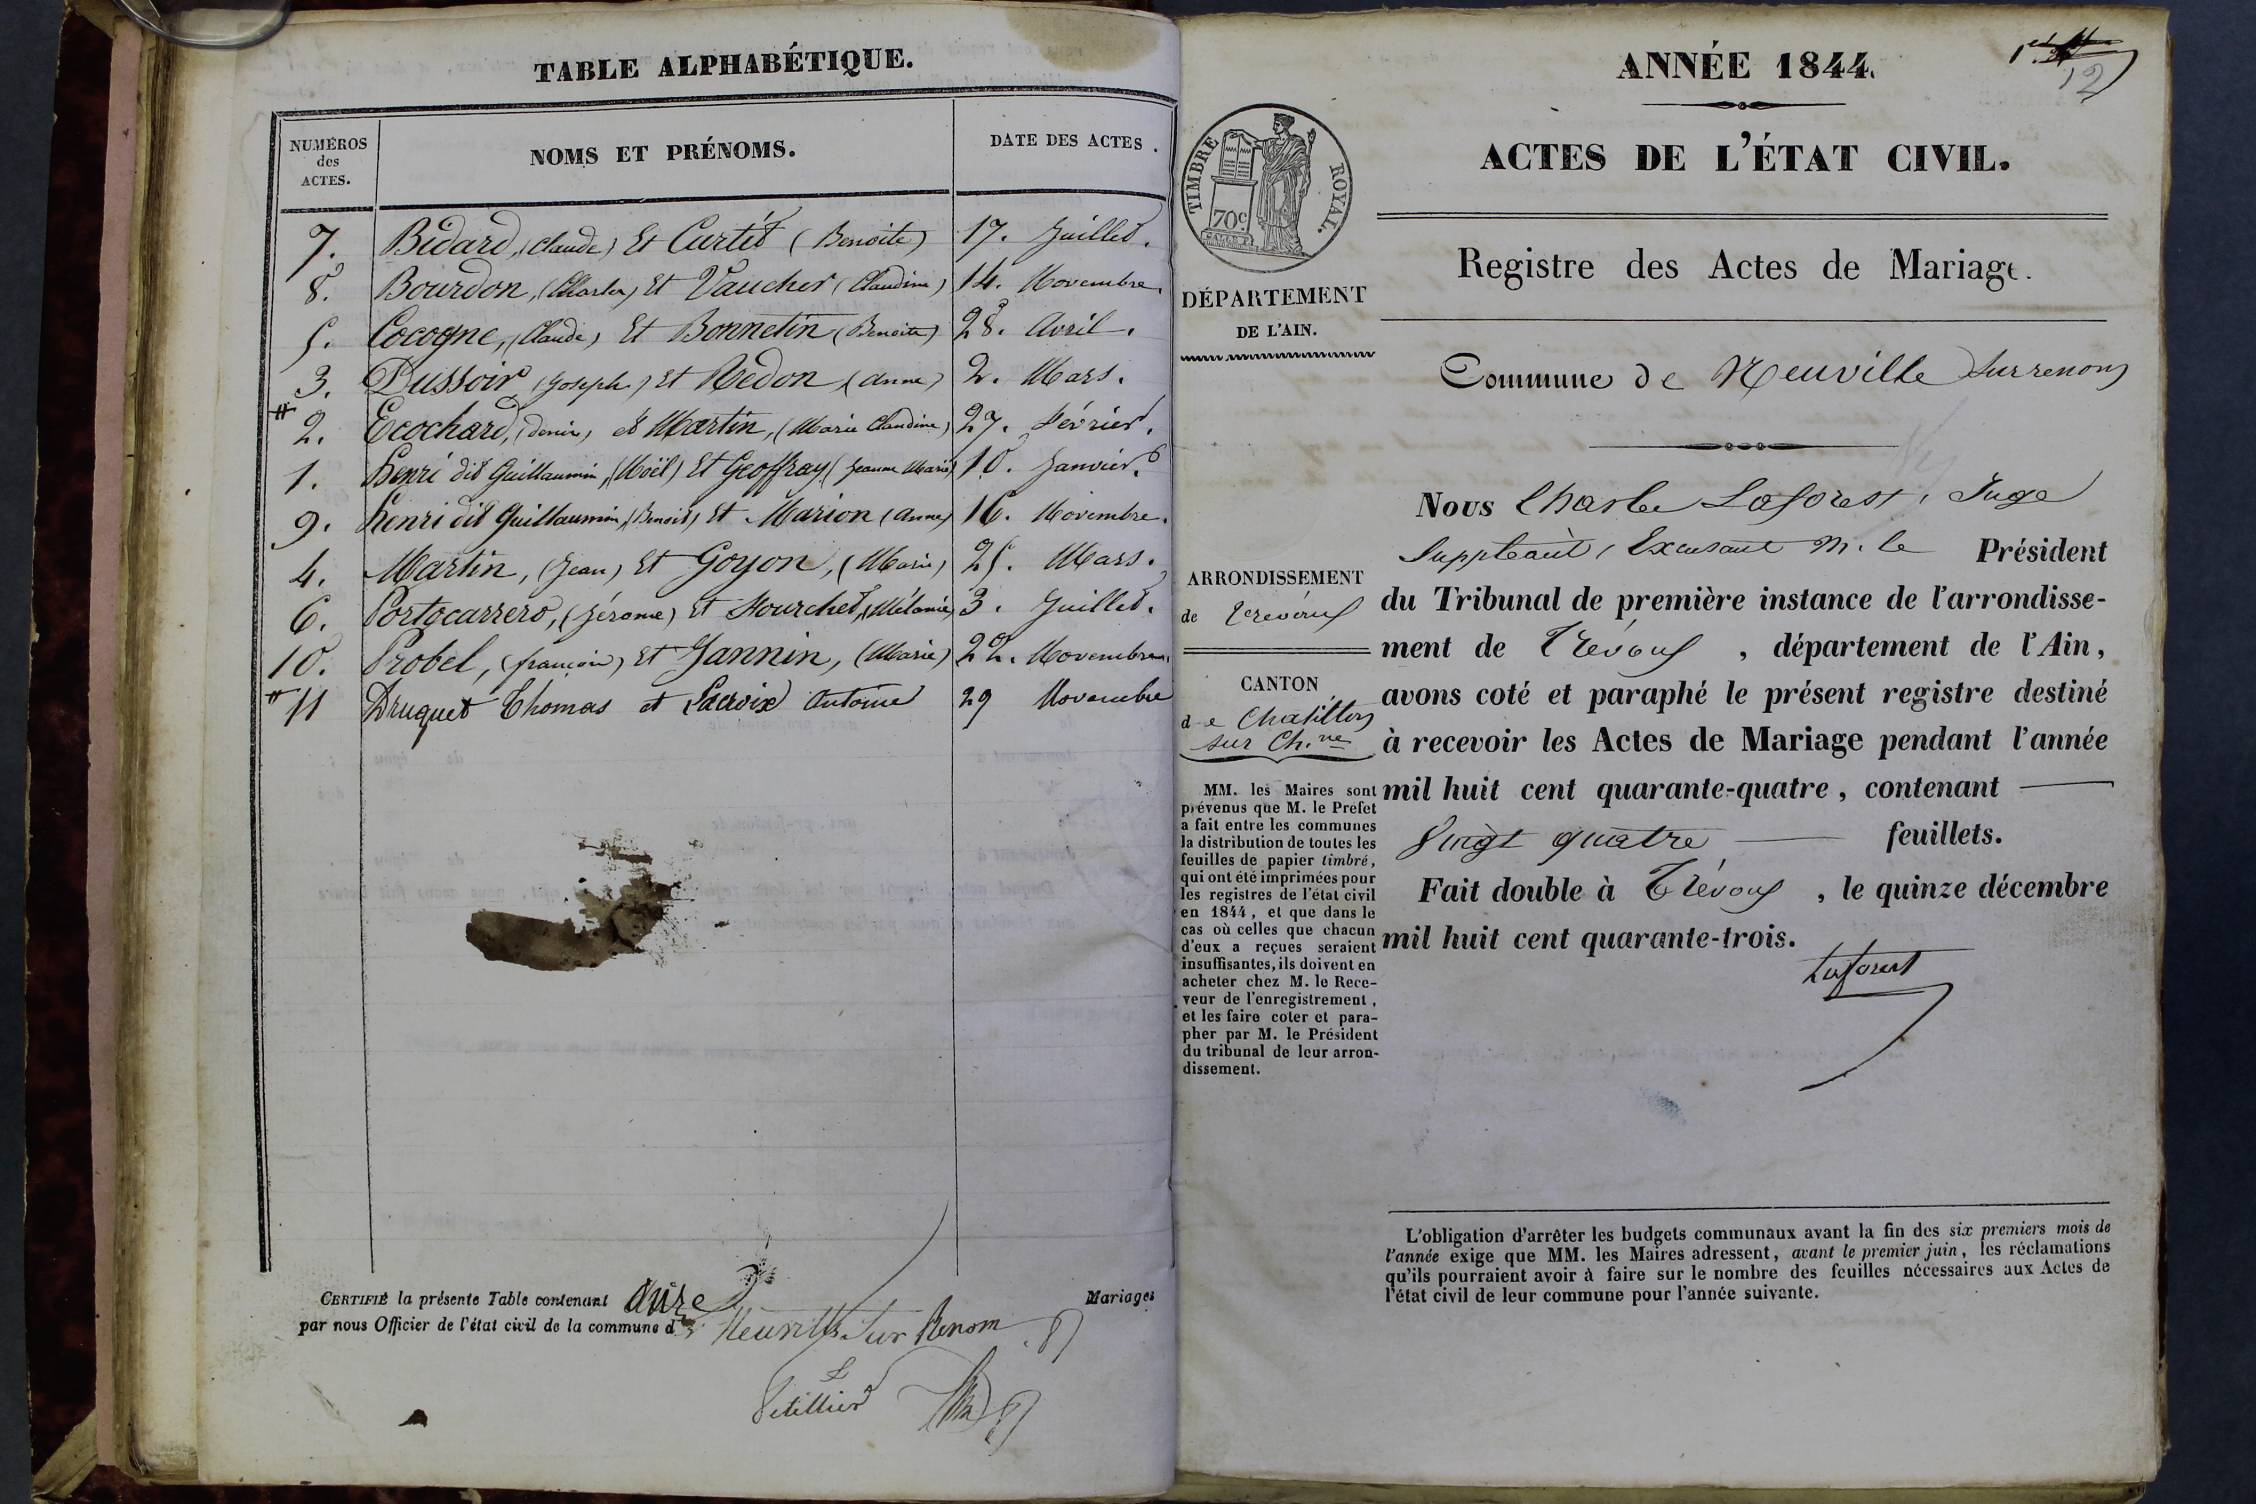 TABLE ALPHABÉTIQUE.
NUMÉROS des ACTES.
NOMS ET PRÉNOMS.
DATE DES ACTES.
7. Bidard, (Claude) Et Curtét (Benoite) 17. Juillet.
8. Bourdon, (Charles) Et Vaucher (Claudine) 14. Novembre.
5. Cocogne, (Claude) Et Bonnetin (Benoite) 28. Avril.
3. Dussoir (Joseph) Et Rédon, (Anne) 2. Mars.
2. Ecochard, (Denis) et Martin, (Marie Claudine) 27. Février.
1. henri dit Guillaumin, (Noël) Et Geoffray (Jeanne Marie) 10. Janvier.
9. henri dit Guillaumin, (Benoit) Et Marion (Anne) 16. Novembre.
4. Martin, (Jean) Et Goyon, (Marie) 25. Mars.
6. Portocarrero, (Jérome) Et (Mélanie) 3. Juillet.
10. Probel, (françois) Et Jannin, (Marie) 22. Novembre.
11 Druguet Thomas et Lacroix Antoine 29 Novembre
CERTIFIÉ la présente Table contenant Onze Mariages
par nous Officier de l'état civil de la commune de Neuville Sur Renom
ANNÉE 1844.
12
TIMBRE ROYAL.
70c
ACTES DE L'ÉTAT CIVIL.
Registre des Actes de Mariage.
DÉPARTEMENT
DE L'AIN.
Commune de Neuville Sur renom
Nous Charles Laforest, Juge
Suppléant, Excusant M. le Président
du Tribunal de première instance de l'arrondisse-
ment de Trévoux, département de l'Ain,
avons coté et paraphé le présent registre destiné
à recevoir les Actes de Mariage pendant l'année
mil huit cent quarante-quatre, contenant
Vingt quatre feuillets.
Fait double à Trévoux, le quinze décembre
mil huit cent quarante-trois.
Laforest
ARRONDISSEMENT
de Trévoux
CANTON
de Chatillon
sur Ch.ne
MM. les Maires sont
prévenus que M. le Préfet
a fait entre les communes
la distribution de toutes les
feuilles de papier timbré,
qui ont été imprimées pour
les registres de l'état civil
en 1844, et que dans le
cas où celles que chacun
d'eux a reçues seraient
insuffisantes, ils doivent en
acheter chez M. le Rece-
veur de l'enregistrement,
et les faire coter et para-
pher par M. le Président
du tribunal de leur arron-
dissement.
L'obligation d'arrêter les budgets communaux avant la fin des six premiers mois de
l'année exige que MM. les Maires adressent, avant le premier juin, les réclamations
qu'ils pourraient avoir à faire sur le nombre des feuilles nécessaires aux Actes de
l'état civil de leur commune pour l'année suivante.